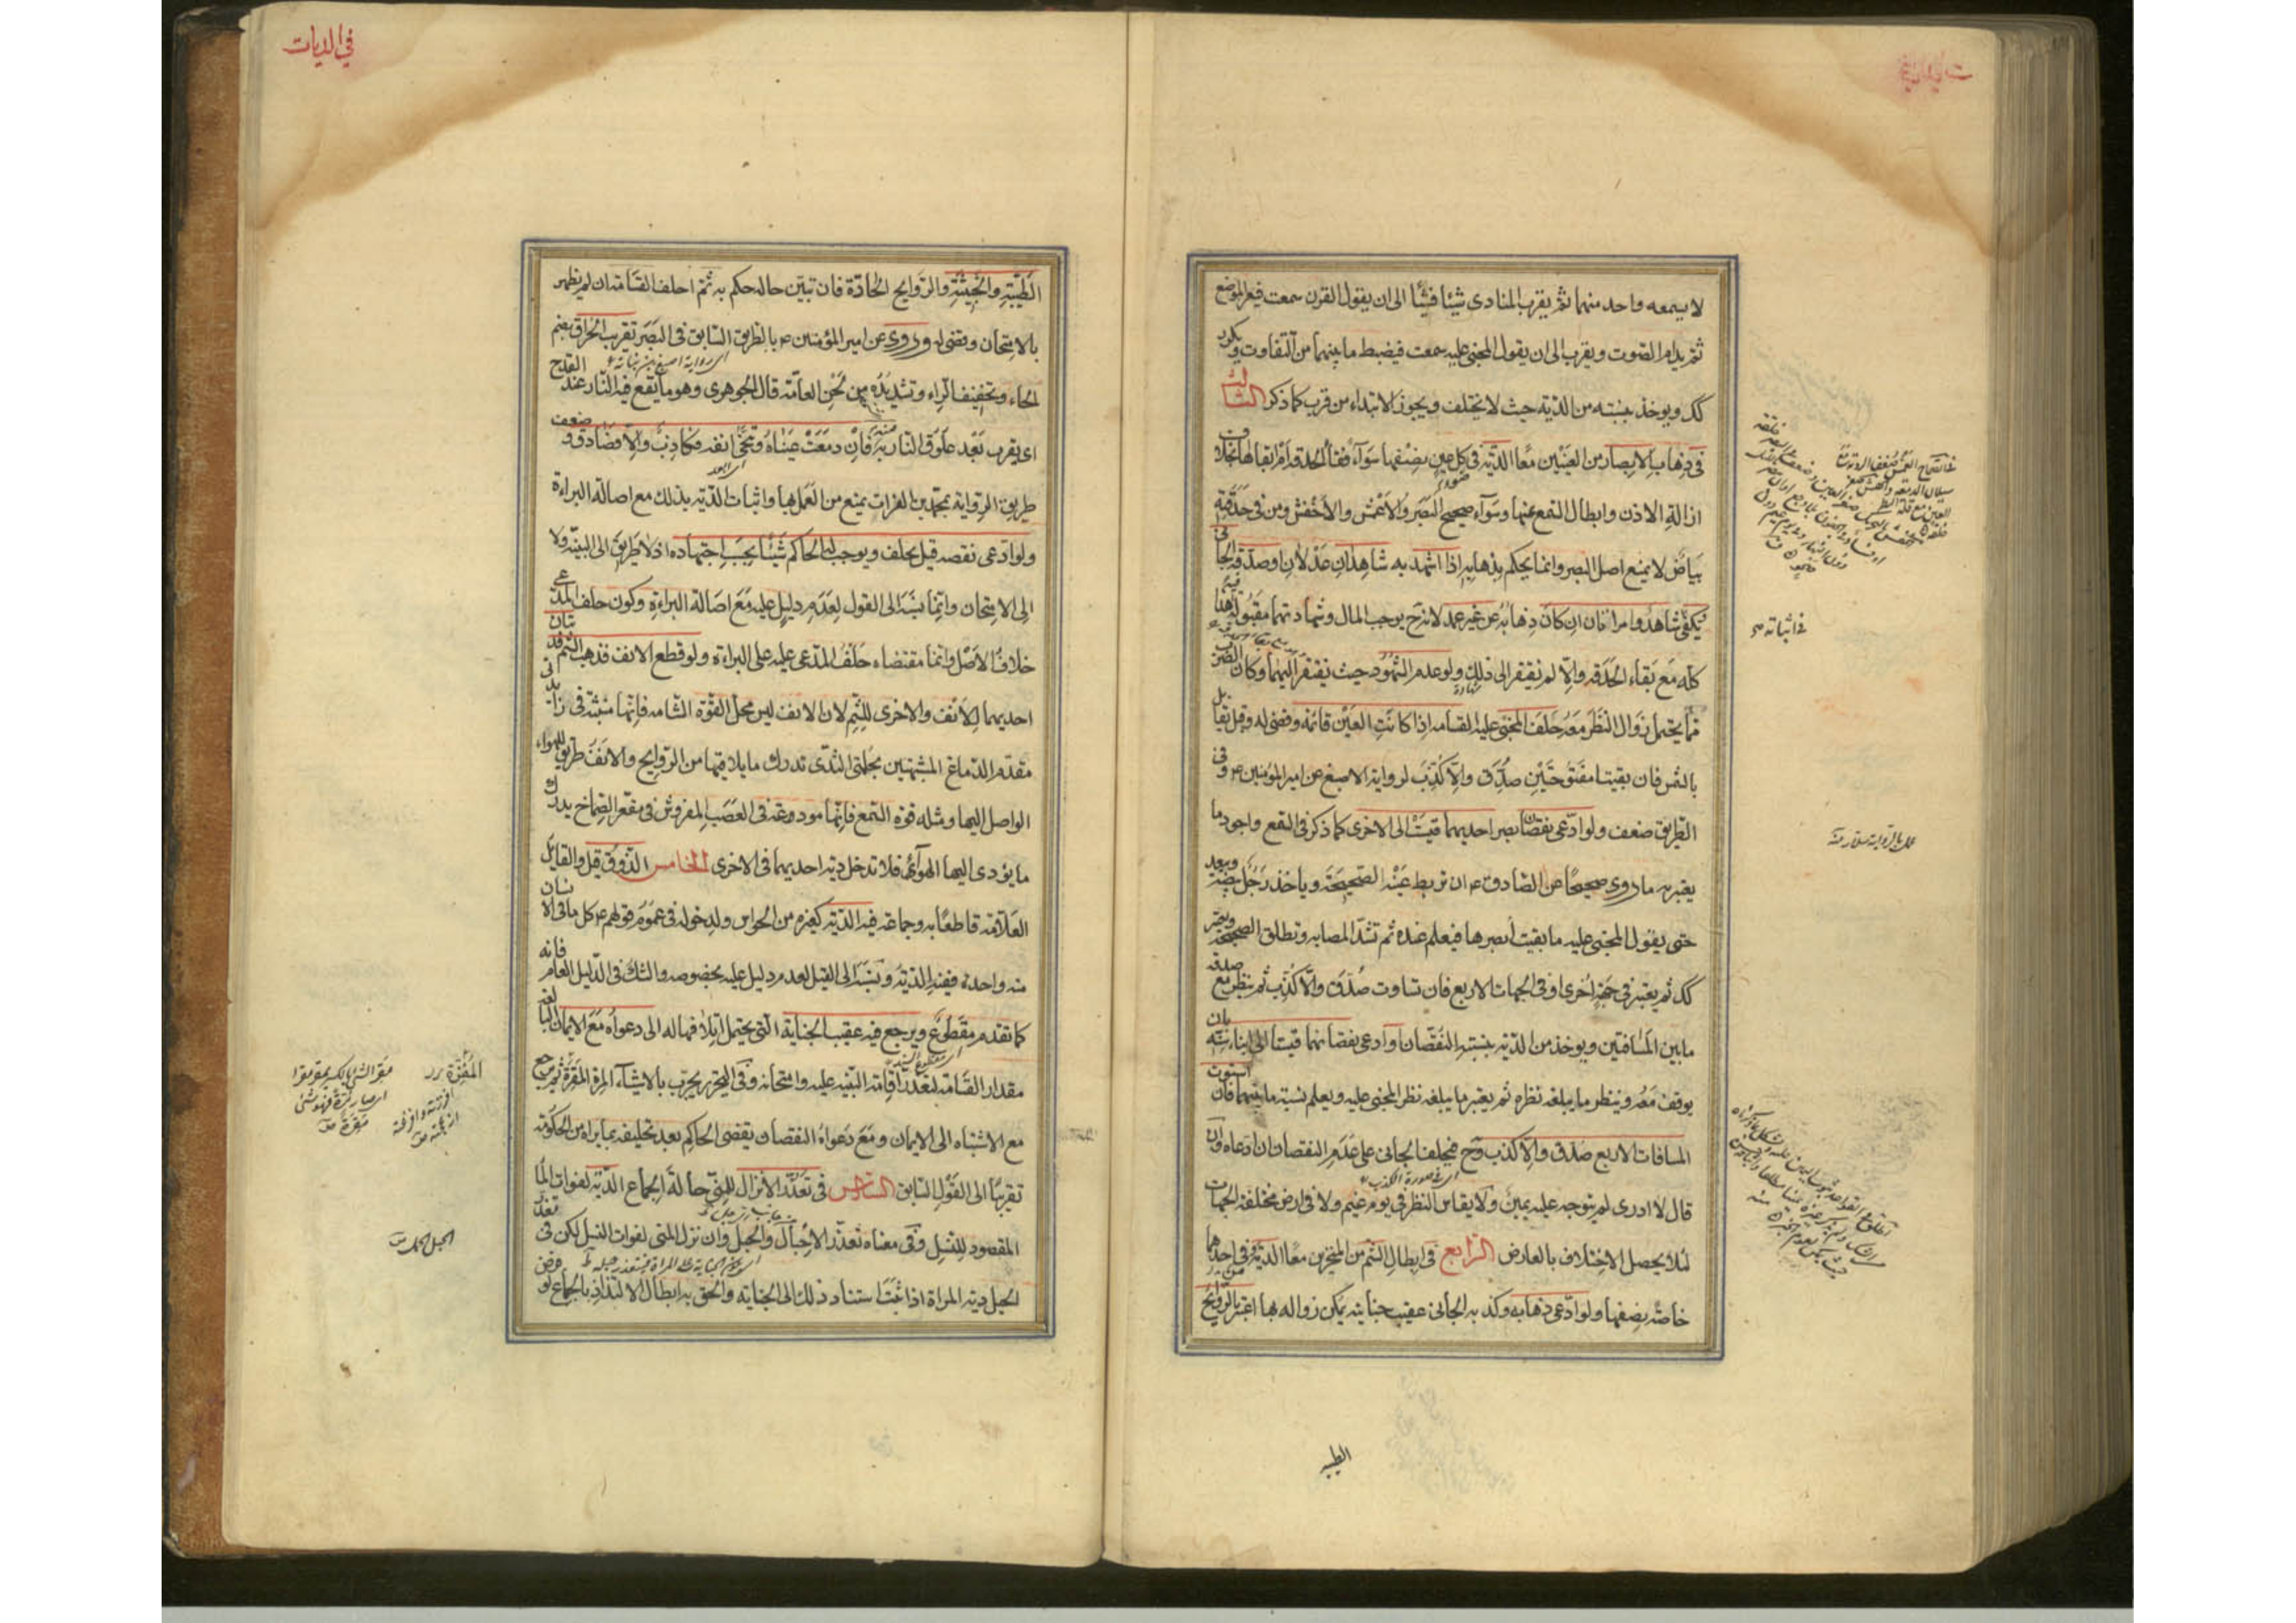 لا يسمعه واحد منهما ثم يقرب المنادى شيئا فشيئا الى ان يقول القرن سمعت فيعرف الموضع
ثم يدام الصوت ويقرب الى ان يقول المجنى عليه سمعت فيضبط ما بينهما من التفاوت ويكرر
كك ويوخذ بنسبته من الدية حيث لا يختلف ويجوز الابتداء من قرب كما ذكر الثالث
فى ذهاب الابصار من العينين معا الدية وفى كل عين نصفها سواء فقأ الحدقة ام ابقاها بخلاف
ازالة الاذن وابطال السمع منها وسواء صحيح البصر والاعمش والاخفش ومن فى حدقته
بياض لا يمنع اصل البصر وانما يحكم بذهابه اذا شهد به شاهدان عدلان او صدقه الجانى
ويكفى شاهد وامراتان ان كان ذهابه عن غير عمد لانه ح يوجب المال وشهادتهما مقبولة فيه هذا
كله مع بقاء الحدقة والا لم يفتقر الى ذلك ولو عدم الشهود حيث يفتقر اليهما وكان الضرب
مما يحتمل زوال النظر معه حلف المجنى عليه القسامة اذا كانت العين قائمة وقضى له وقيل يقابل
بالشمس فان بقيتا مفتوحتين صدق والا كذب لرواية الاصبغ عن امير المؤمنين ع وفى
الطريق ضعف ولو ادعى نقصان بصر احديهما قيست الى الاخرى كما ذكر فى السمع واجود ما
يعتبر به ما روى صحيحا عن الصادق ع ان تربط عينه الصحيحة وياخذ رجل بيضة ويبعد
حتى يقول المجنى عليه ما بقيت أبصرها فيعلم عنده ثم تشد المصابة وتطلق الصحيحة ويعتبر
كك ثم يعتبر فى جهة اخرى او فى الجهات الاربع فان تساوت صدق والا كذب ثم ينظر مع صدقه
ما بين المسافتين ويوخذ من الدية بنسبة النقصان او ادعى نقصانهما قيستا الى ابناء سنه بان
يوقف معه وينظر ما يبلغه نظره ثم يعتبر ما يبلغه نظر المجنى عليه ويعلم نسبة ما بينهما فان استوت
المسافات الاربع صدق والا كذب وح فيحلف الجانى على عدم النقصان ان ادعاه وان
اى فى صورة الكذب
قال لا ادرى لم يتوجه عليه يمين ولا يقاس النظر فى يوم غيم ولا فى ارض مختلفة الجهات
لئلا يحصل الاختلاف بالعارض الرابع فى ابطال الشم من المنخرين معا الدية وفى احدهما
خاصة نصفها ولو ادعى ذهابه وكذبه الجانى عقيب جناية يمكن زواله بها اعتبر بالروايح
فى اثباته
الطيبة
فى الديات
الطيبة والخبيثة والروايح الحادة فان تبين حاله حكم به ثم احلف القسامة ان لم يظهر
بالامتحان وقضى له وروى عن امير المؤمنين ع بالطريق السابق فى البصر تقريب الحراق بضم
اى رواية اصبغ بن نباتة
الحاء وتخفيف الراء وتشديده من لحن العامة قال الجوهرى وهو ما يقع فيه النار عند القدح
اى يقرب بعد علوق النار به منه فان دمعت عيناه ونحى انفه فكاذب والا فصادق وضعف
طريق الرواية بمحمد بن الفرات يمنع من العمل بها واثبات الدية بذلك مع اصالة البراءة
ولو ادعى نقصه قيل يحلف ويوجب له الحاكم شيئا بحسب اجتهاده اذ لا طريق الى البينة ولا
الى الامتحان وانما نسبه الى القول لعدم دليل عليه مع اصالة البراءة وكون حلف المدعى
خلاف الاصل وانما مقتضاه حلف المدعى عليه على البراءة ولو قطع الانف فذهب الشم فديتان
احديهما للانف والاخرى للشم لان الانف ليس محل القوة الشامة فانها منبثة فى زائدتى
مقدم الدماغ المشبهتين بحلمتى الثدى تدرك ما يلاقيها من الروايح والانف طريق للهواء
الواصل اليها ومثله قوة السمع فانها مودوعة فى العصب المفروش فى مقعر الصماخ يدرك
ما يؤدى اليها الهواء فلا تدخل دية احديهما فى الاخرى الخامس الذوق قيل والقايل
العلامة قاطعا به وجماعة فيه الدية كغيره من الحواس ولدخوله فى عموم قولهم ع كل ما فى الانسان
منه واحد ففيه الدية ونسبه الى القيل لعدم دليل عليه بخصوصه والشك فى الدليل العام فانه
كما تقدم مقطوع ويرجع فيه عقيب الجناية التى يحتمل اتلافها له الى دعواه مع الايمان البالغة
مقدار القسامة لتعذر اقامة البينة عليه وامتحانه وفى التحرير يجرب بالاشياء المرة المقرة ثم يرجع
مع الاشتباه الى الايمان ومع دعواه النقصان يقضى الحاكم بعد تحليفه بما يراه من الحكومة
تقريبا الى القول السابق السادس فى تعذر الانزال للمنى حالة الجماع الدية لفوات الماء
المقصود للنسل وفى معناه تعذر الاحبال والحبل وان نزل المنى لفوات النسل لكن فى تعذر
الحبل دية المراة اذا ثبت استناد ذلك الى الجناية والحق به ابطال الالتذاذ بالجماع لو فرض
الحبل الحمل